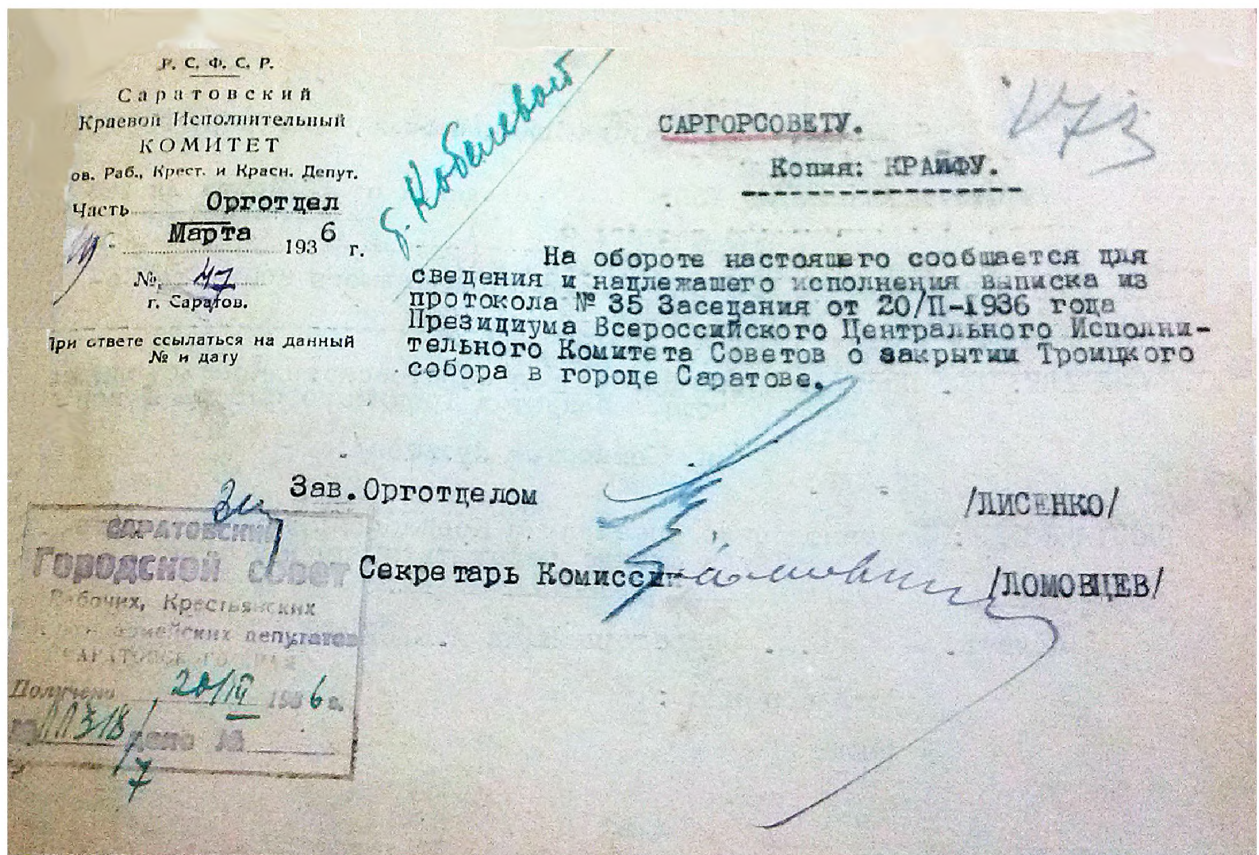 Р. С. Ф. С. Р.
Саратовский
Краевой Исполнительный
КОМИТЕТ
ов. Раб., Крест. и Красн. Депут.
Часть Орготдел
Марта 1936 г.
№ 47
г. Саратов.
При ответе ссылаться на данный
№ и дату
д. Кобелевой
173
САРГОРСОВЕТУ.
Копия: КРАЙФУ.
На обороте настоящего сообщается для
сведения и надлежащего исполнения выписка из
протокола № 35 Заседания от 20/П-1936 года
Президиума Всероссийского Центрального Исполни-
тельного Комитета Советов о закрытии Троицкого
собора в городе Саратове.
Зав. Орготделом /ЛИСЕНКО/
Секретарь Комиссии /ЛОМОВЦЕВ/
САРАТОВСКИЙ
Городской совет
Рабочих, Крестьянских
армейских депутатов
Получено 20/III 1936 г.
дело №
7